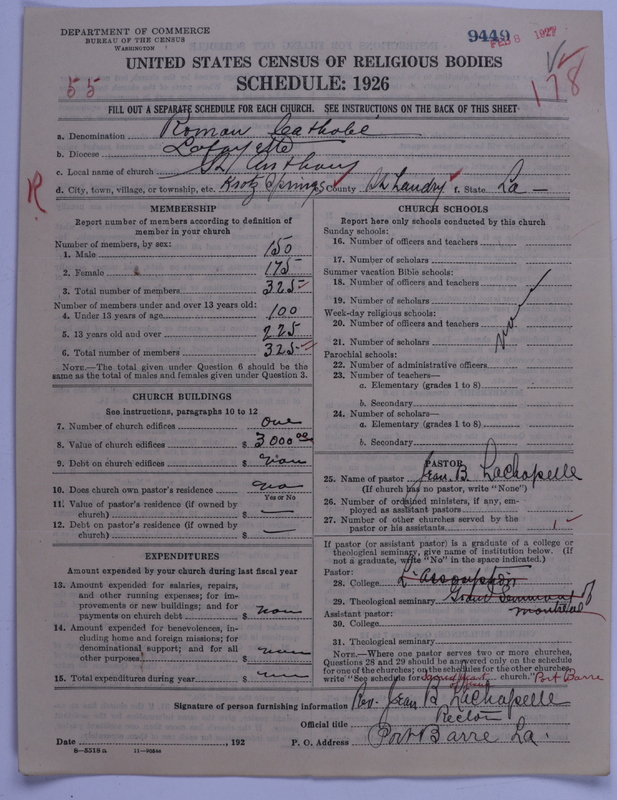 DEPARTMENT OF COMMERCE
BUREAU OF THE CENSUS
WASHINGTON
9449
FEB 8 1927
UNITED STATES CENSUS OF RELIGIOUS BODIES
SCHEDULE: 1926
55
178
FILL OUT A SEPARATE SCHEDULE FOR EACH CHURCH. SEE INSTRUCTIONS ON THE BACK OF THIS SHEET
a. Denomination Roman Catholic
b. Diocese Lafayette
c. Local name of church St Anthony
d. City, town, village, or township, etc. Krotz Springs County St Landry f. State La -
R
MEMBERSHIP
Report number of members according to definition of
member in your church
Number of members, by sex:
1. Male 150
2. Female 175
3. Total number of members 325
Number of members under and over 13 years old:
4. Under 13 years of age 100
5. 13 years old and over 225
6. Total number of members 325
NOTE.—The total given under Question 6 should be
same as the total of males and females given under Question 3.
CHURCH BUILDINGS
See instructions, paragraphs 10 to 12
7. Number of church edifices one
8. Value of church edifices $ 3000 00
9. Debt on church edifices $ non
10. Does church own pastor's residence no
Yes or No
11. Value of pastor's residence (if owned by
church) $ —
12. Debt on pastor's residence (if owned by
church) $ —
EXPENDITURES
Amount expended by your church during last fiscal year
13. Amount expended for salaries, repairs,
and other running expenses; for im-
provements or new buildings; and for
payments on church debt $ non
14. Amount expended for benevolences, in-
cluding home and foreign missions; for
denominational support; and for all
other purposes $
15. Total expenditures during year $
CHURCH SCHOOLS
Report here only schools conducted by this church
Sunday schools:
16. Number of officers and teachers
17. Number of scholars
Summer vacation Bible schools:
18. Number of officers and teachers
19. Number of scholars
Week-day religious schools:
20. Number of officers and teachers
21. Number of scholars
Parochial schools:
22. Number of administrative officers
23. Number of teachers—
a. Elementary (grades 1 to 8)
b. Secondary
24. Number of scholars—
a. Elementary (grades 1 to 8)
b. Secondary
PASTOR
25. Name of pastor Jean B. Lachapelle
(If church has no pastor, write "None")
26. Number of ordained ministers, if any, em-
ployed as assistant pastors
27. Number of other churches served by the
pastor or his assistants 1
If pastor (or assistant pastor) is a graduate of a college or
theological seminary, give name of institution below. (If
not a graduate, write "No" in the space indicated.)
Pastor:
28. College L'assomption
29. Theological seminary Grand Seminary of
Montreal
Assistant pastor:
30. College
31. Theological seminary
NOTE.—Where one pastor serves two or more churches,
Questions 28 and 29 should be answered only on the schedule
for one of the churches; on the schedules for the other churches,
write "See schedule for church." Port Barre
Signature of person furnishing information Rev. Jean B. Lachapelle
Official title Rector
Date , 192 P. O. Address Port Barre La.
8-5318 a 11-9054